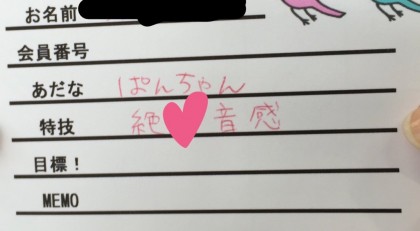 お名前
会員番号
あだな ぱんちゃん
特技 絶 音感
目標!
MEMO